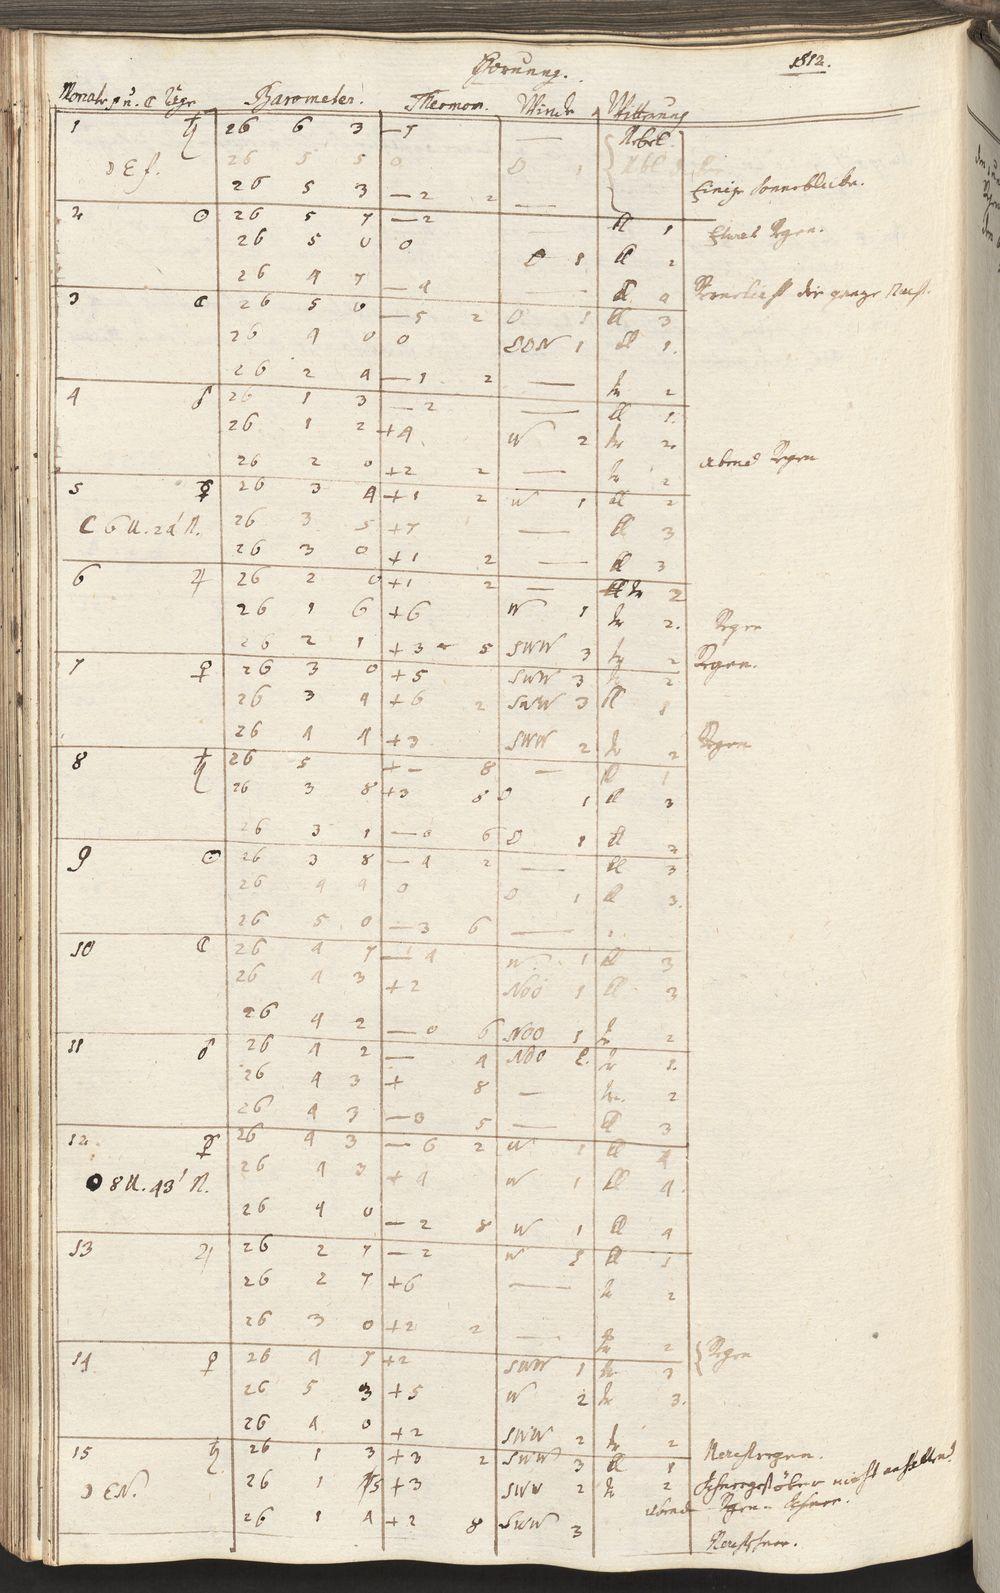 Hornung. 1812.
Monats u. ☾ Täge Barometer. Thermom. Winde Witterung
1 ♄ 26 6 3 — 7 — Nebel
☽ Erf. 26 5 5 0 O 1
26 5 3 — 2 2 — Einige Sonneblicke.
2 ☉ 26 5 7 — 2 — tl 1 Etwas Regen.
26 5 0 0 O 1 tl 2
26 4 7 — 4 — tl 4 die ganze Nacht.
3 ☾ 26 5 0 — 5 2 O 1 tl 3
26 4 0 0 SOW 1 tl 1.
26 2 4 — 1 2 — tr 2
4 ♂ 26 1 3 — 2 — tl 1.
26 1 2 + 4. W 2 tr 2.
26 2 0 + 2 2 — tr 2 Abend Regen
5 ☿ 26 3 4 + 1 2 W 1 tl 2
☾ 6 U. 24' N. 26 3 5 + 7 — tl 3
26 3 0 + 1 2 — tl 3
6 ♃ 26 2 0 + 1 2 — tr 2
26 1 6 + 6 W 1 tr 2. Regen
26 2 1 + 3 5 SWW 3 tr 2 Regen.
7 ♀ 26 3 0 + 5 SWW 3 tr 2
26 3 4 + 6 2 SWW 3 tl 1
26 4 4 + 3 SWW 2 tr 2 Regen
8 ♄ 26 5 + — 8 — tl 1
26 3 8 + 3 5 O 1 tl 3
26 3 1 — 0 6 O 1 tl 3
9 ☉ 26 3 8 — 4 2 — tl 3
26 4 4 0 O 1 tl 3.
26 5 0 — 3 6 —
10 ☾ 26 4 7 — 4 W 1 tl 3
26 4 3 + 2 NOO 1 tl 3
26 4 2 — 0 6 NOO 1 tr 2
11 ♂ 26 4 2 — 4 NOO 2. tr 1.
26 4 3 + 8 — tr. 2
26 4 3 — 3 5 — tl 3
12 ☿ 26 4 3 — 6 2 W 1 tl 4
● 8 U. 43' N. 26 4 3 + 4 W 1 tl 4.
26 4 0 — 2 8 W 1 tl 4
13 ♃ 26 2 7 — 2 W 1 tl 1
26 2 7 + 6 — tr 2
26 3 0 + 2 2 — tr 2 Regen
14 ♀ 26 4 7 + 2 SWW 1 tr. 3
26 5 3 + 5 W 2 tr 3.
26 4 0 + 2 SWW 2 tr 2
15 ♄ 26 1 3 + 3 2 SWW 3 tl 1 Nachtregen.
☽ EN. 26 1 5 + 3 SWW 2 tr 2 Schneegestöber nicht anhaltend.
26 1 4 + 2 8 SWW 3 abends Regen. Schnee.
Nachtschnee.